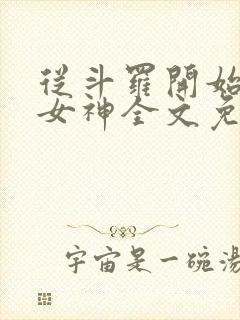 從斗羅開始
女神全文免
宇宙是一碗湯